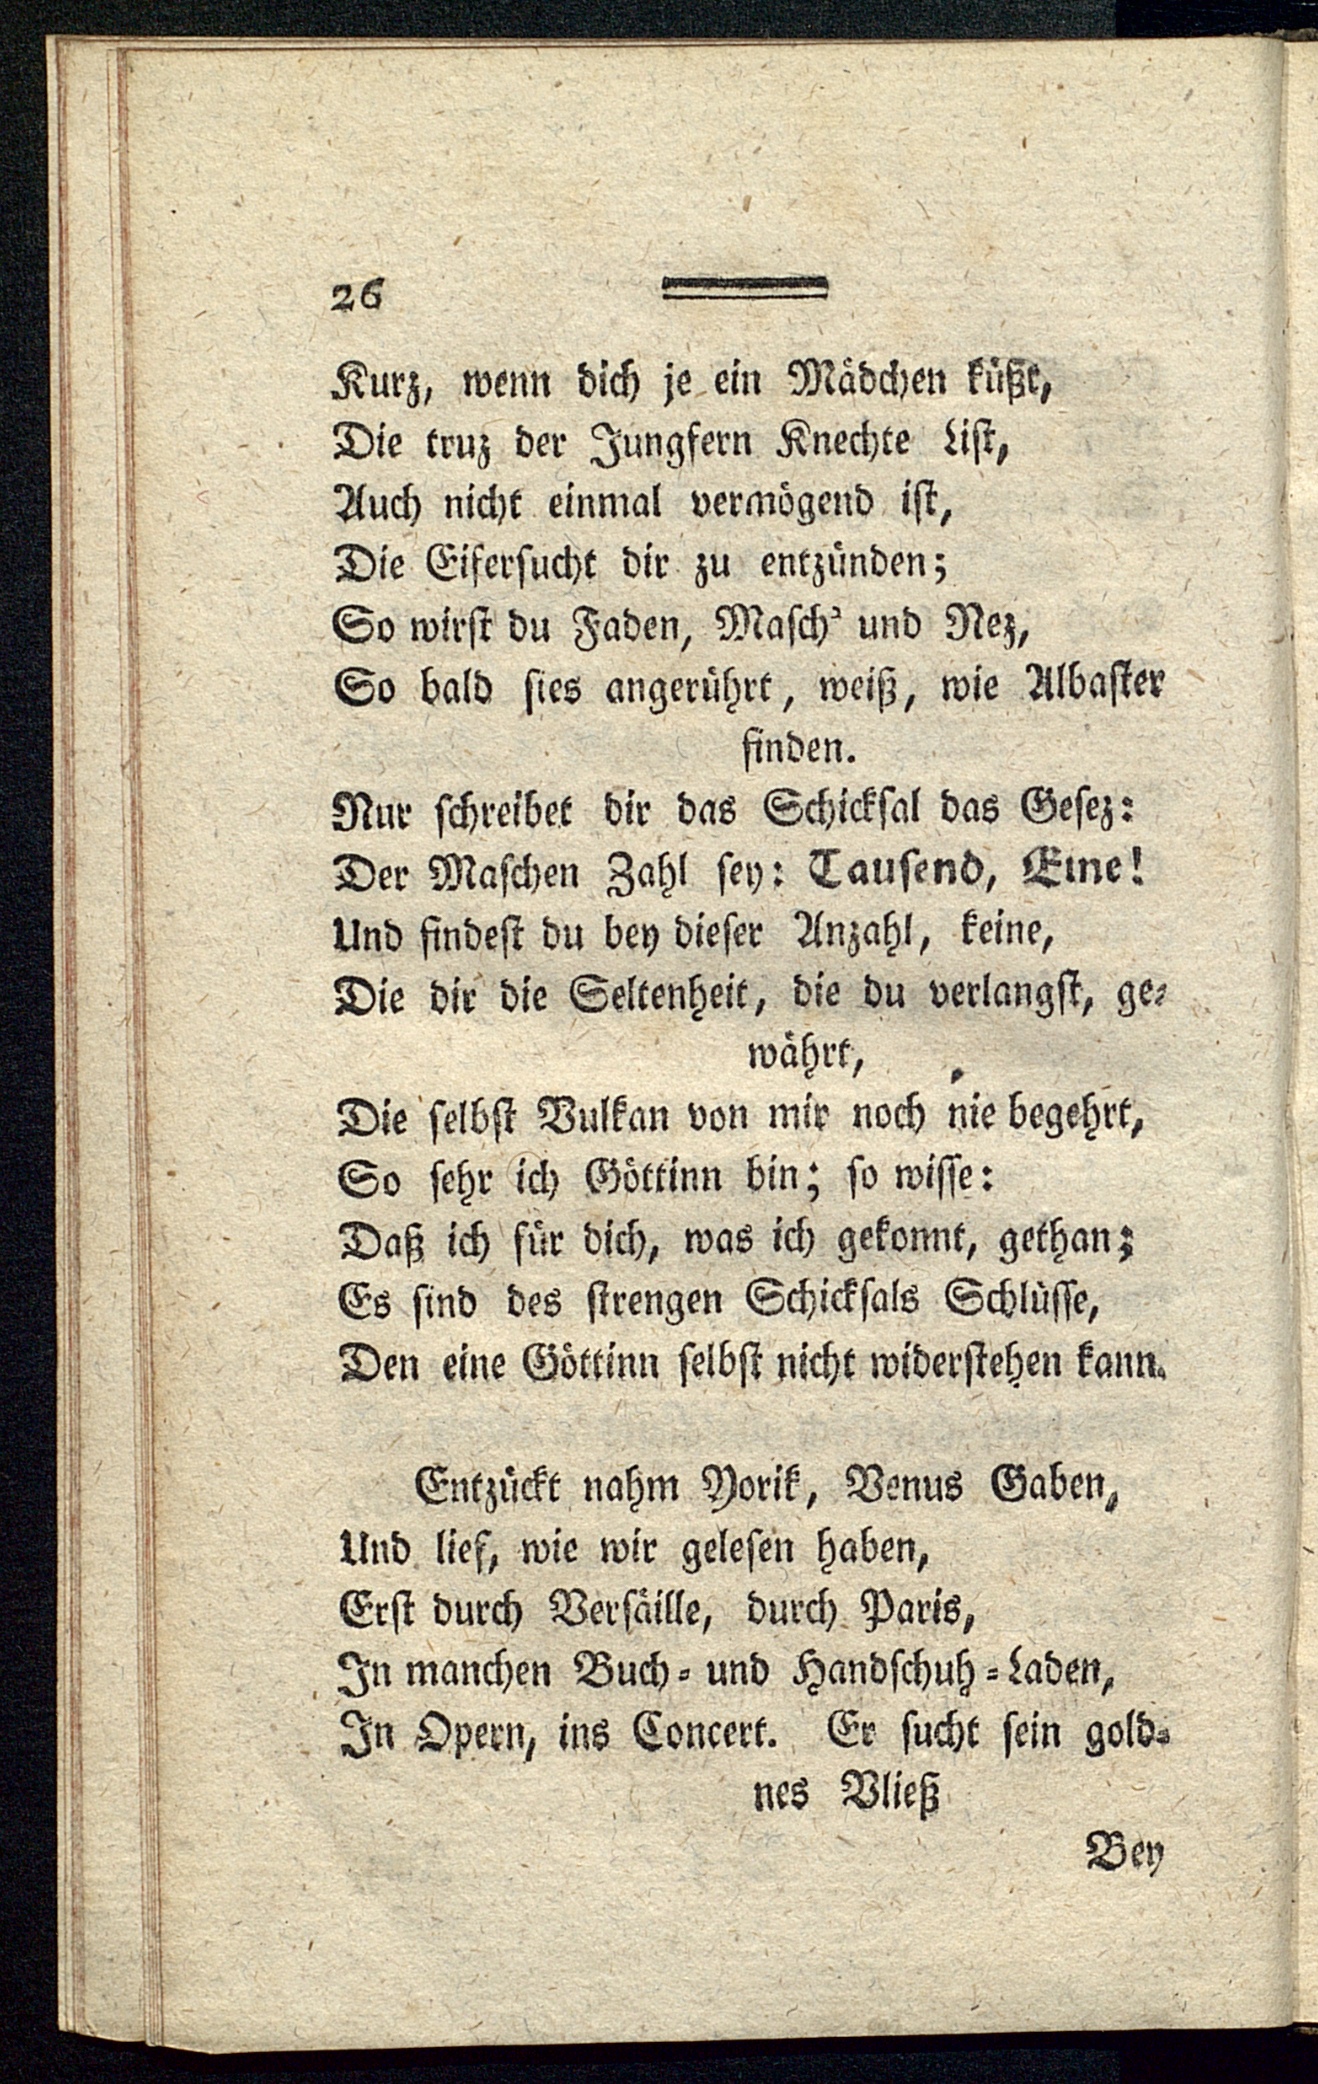 26
Kurz, wenn dich je ein Mädchen küßt,
Die truz der Jungfern Knechte List,
Auch nicht einmal vermögend ist,
Die Eifersucht dir zu entzünden;
So wirst du Faden, Masch' und Nez,
So bald sies angerührt, weiß, wie Albaster
finden.
Nur schreibet dir das Schicksal das Gesez:
Der Maschen Zahl sey: Tausend, Eine!
Und findest du bey dieser Anzahl, keine,
Die dir die Seltenheit, die du verlangst, ge-
währt,
Die selbst Vulkan von mir noch nie begehrt,
So sehr ich Göttinn bin; so wisse:
Daß ich für dich, was ich gekonnt, gethan;
Es sind des strengen Schicksals Schlüsse,
Den eine Göttinn selbst nicht widerstehen kann.
Entzückt nahm Yorik, Venus Gaben,
Und lief, wie wir gelesen haben,
Erst durch Versäille, durch Paris,
In manchen Buch- und Handschuh-Laden,
In Opern, ins Concert. Er sucht sein gold-
nes Vließ
Bey